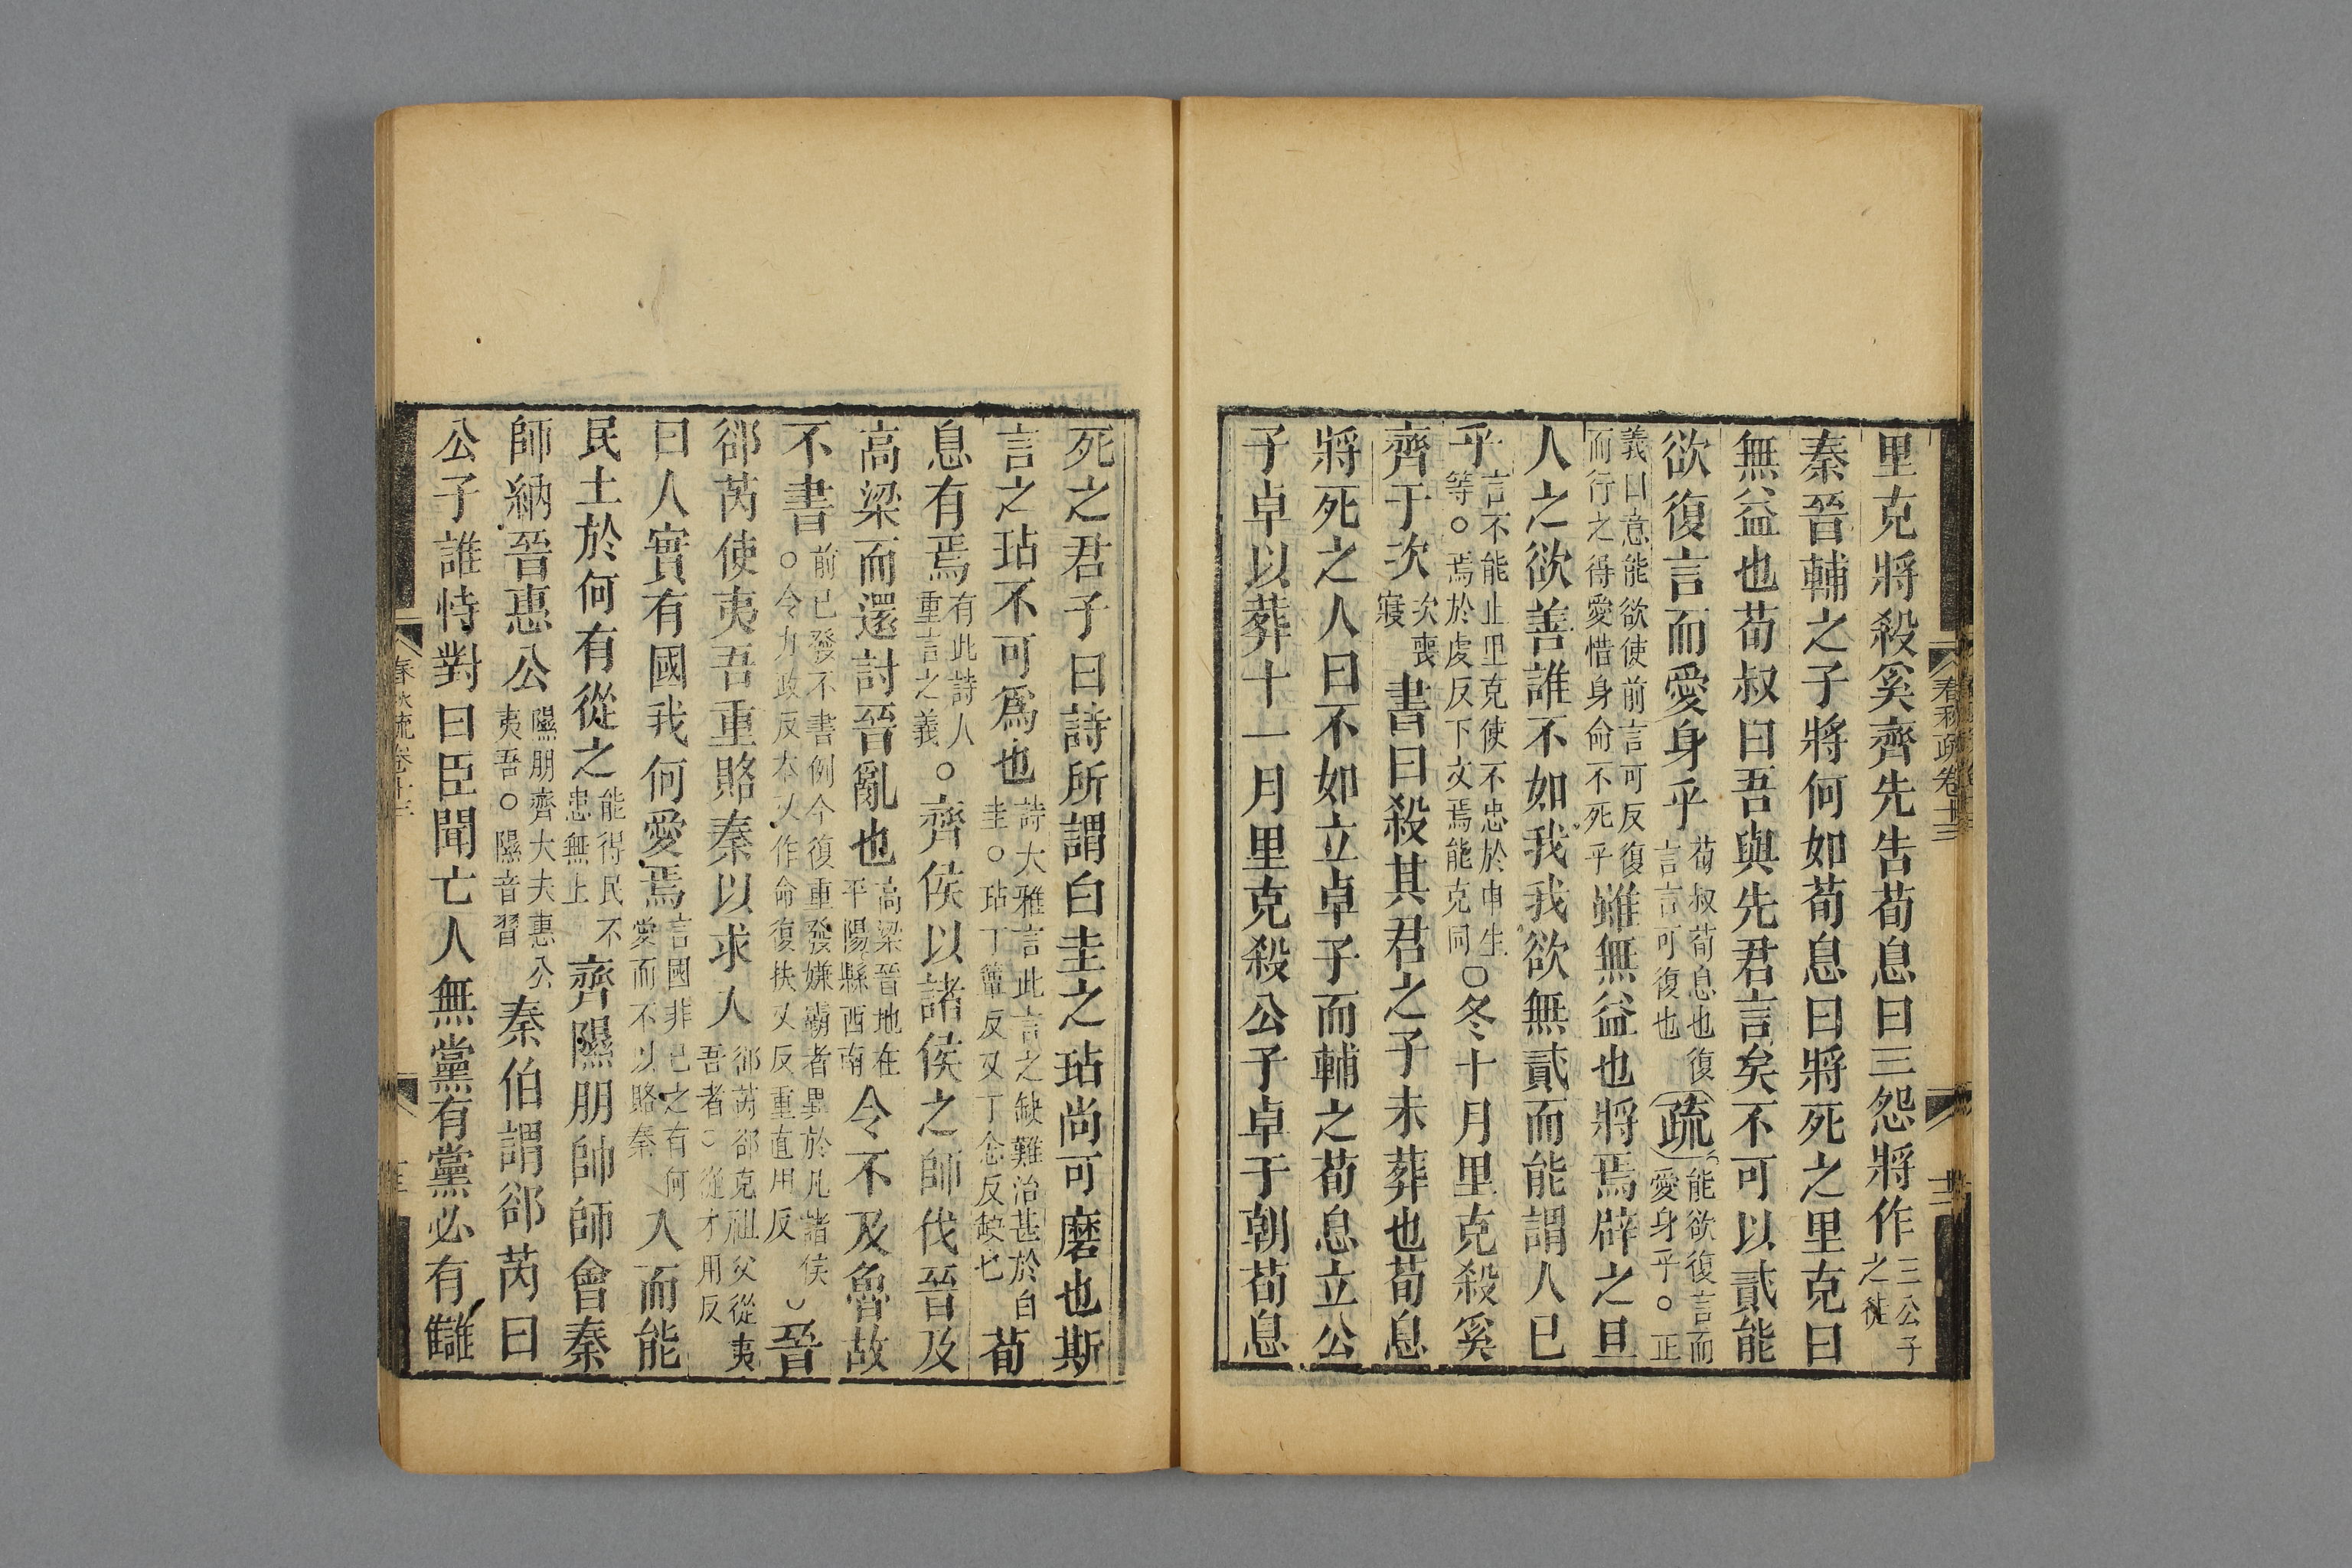 里克將殺奚齊先告荀息曰三怨將作三公子之徒
秦晉輔之子將何如荀息曰將死之里克曰
無益也荀叔曰吾與先君言矣不可以貳能
欲復言而愛身乎荀叔荀息也復言言可復也疏能欲復言而愛身乎○正
義曰意能欲使前言可反復而行之得愛惜身命不死乎雖無益也將焉辟之且
人之欲善誰不如我我欲無貳而能謂人已
乎言不能止里克使不忠於申生等○焉於虔反下文焉能克同○冬十月里克殺奚
齊于次次喪寢書曰殺其君之子未葬也荀息
將死之人曰不如立卓子而輔之荀息立公
子卓以葬十一月里克殺公子卓于朝荀息
春秋疏卷十三
十二
死之君子曰詩所謂白圭之玷尚可磨也斯
言之玷不可爲也詩大雅言此言之缺難治甚於白圭○玷丁簟反又丁念反缺也荀
息有焉有此詩人重言之義○齊侯以諸侯之師伐晉及
高梁而還討晉亂也高梁晉地在平陽縣西南令不及魯故
不書前已發不書例今復重發嫌霸者異於凡諸侯○令力政反本又作命復扶又反重直用反晉
郤芮使夷吾重賂秦以求入郤芮郤克祖父從夷吾者○從才用反
曰人實有國我何愛焉言國非己之有何愛而不以賂秦入而能
民土於何有從之能得民不患無土齊隰朋帥師會秦
師納晉惠公隰朋齊大夫惠公夷吾○隰音習秦伯謂郤芮曰
公子誰恃對曰臣聞亡人無黨有黨必有讎
春秋疏卷十三